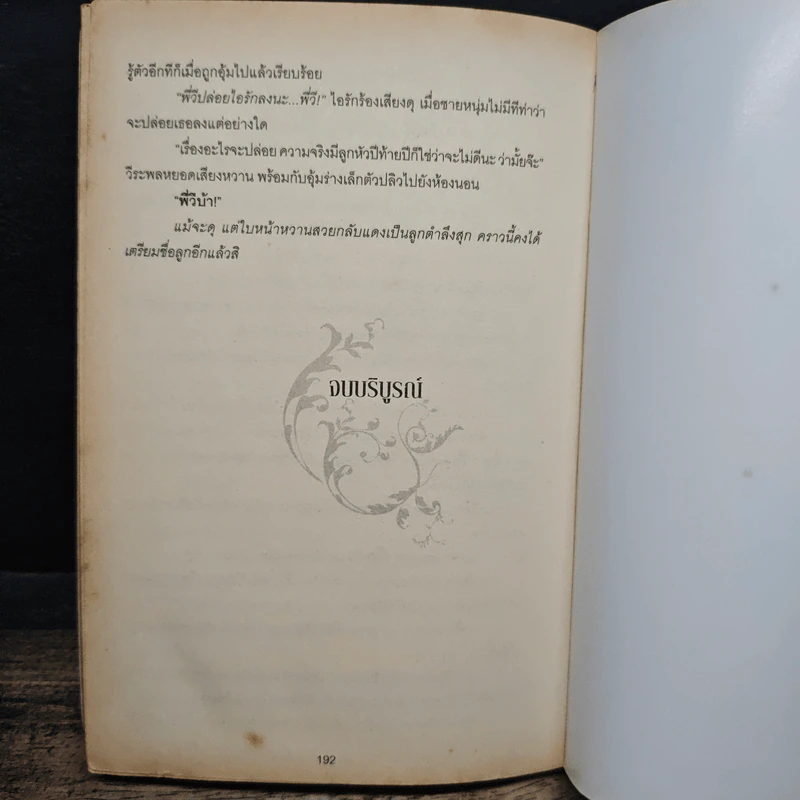 รู้ตัวอีกทีก็เมื่อถูกอุ้มไปแล้วเรียบร้อย
"พี่วีปล่อยไอรักลงนะ...พี่วี!" ไอรักร้องเสียงดุ เมื่อชายหนุ่มไม่มีทีท่าว่า
จะปล่อยเธอลงแต่อย่างใด
"เรื่องอะไรจะปล่อย ความจริงมีลูกหัวปีท้ายปีก็ใช่ว่าจะไม่ดีนะ ว่ามั้ยจ๊ะ"
วีระพลหยอดเสียงหวาน พร้อมกับอุ้มร่างเล็กตัวปลิวไปยังห้องนอน
"พี่วีบ้า!"
แม้จะดุ แต่ใบหน้าหวานสวยกลับแดงเป็นลูกตำลึงสุก คราวนี้คงได้
เตรียมชื่อลูกอีกแล้วสิ
จบบริบูรณ์
192